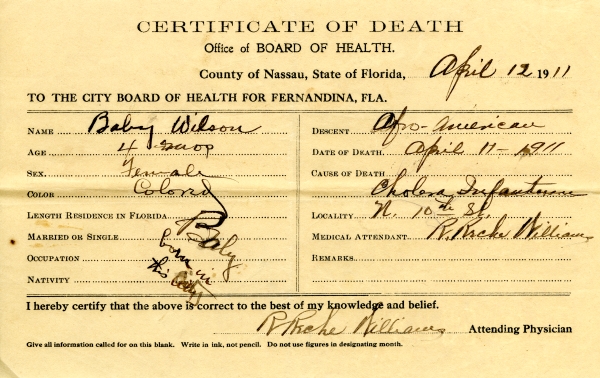 CERTIFICATE OF DEATH
Office of BOARD OF HEALTH.
County of Nassau, State of Florida, April 12 1911
TO THE CITY BOARD OF HEALTH FOR FERNANDINA, FLA.
NAME Baby Wilson
AGE 4 mos
SEX. Female
COLOR Colord
LENGTH RESIDENCE IN FLORIDA
MARRIED OR SINGLE Baby
OCCUPATION born in
NATIVITY this City
DESCENT. Afro-American
DATE OF DEATH. April 11 - 1911
CAUSE OF DEATH
Cholera Infantum
LOCALITY N. 10th St.
MEDICAL ATTENDANT Williams
REMARKS
I hereby certify that the above is correct to the best of my knowledge and belief.
Williams Attending Physician
Give all information called for on this blank. Write in ink, not pencil. Do not use figures in designating month.